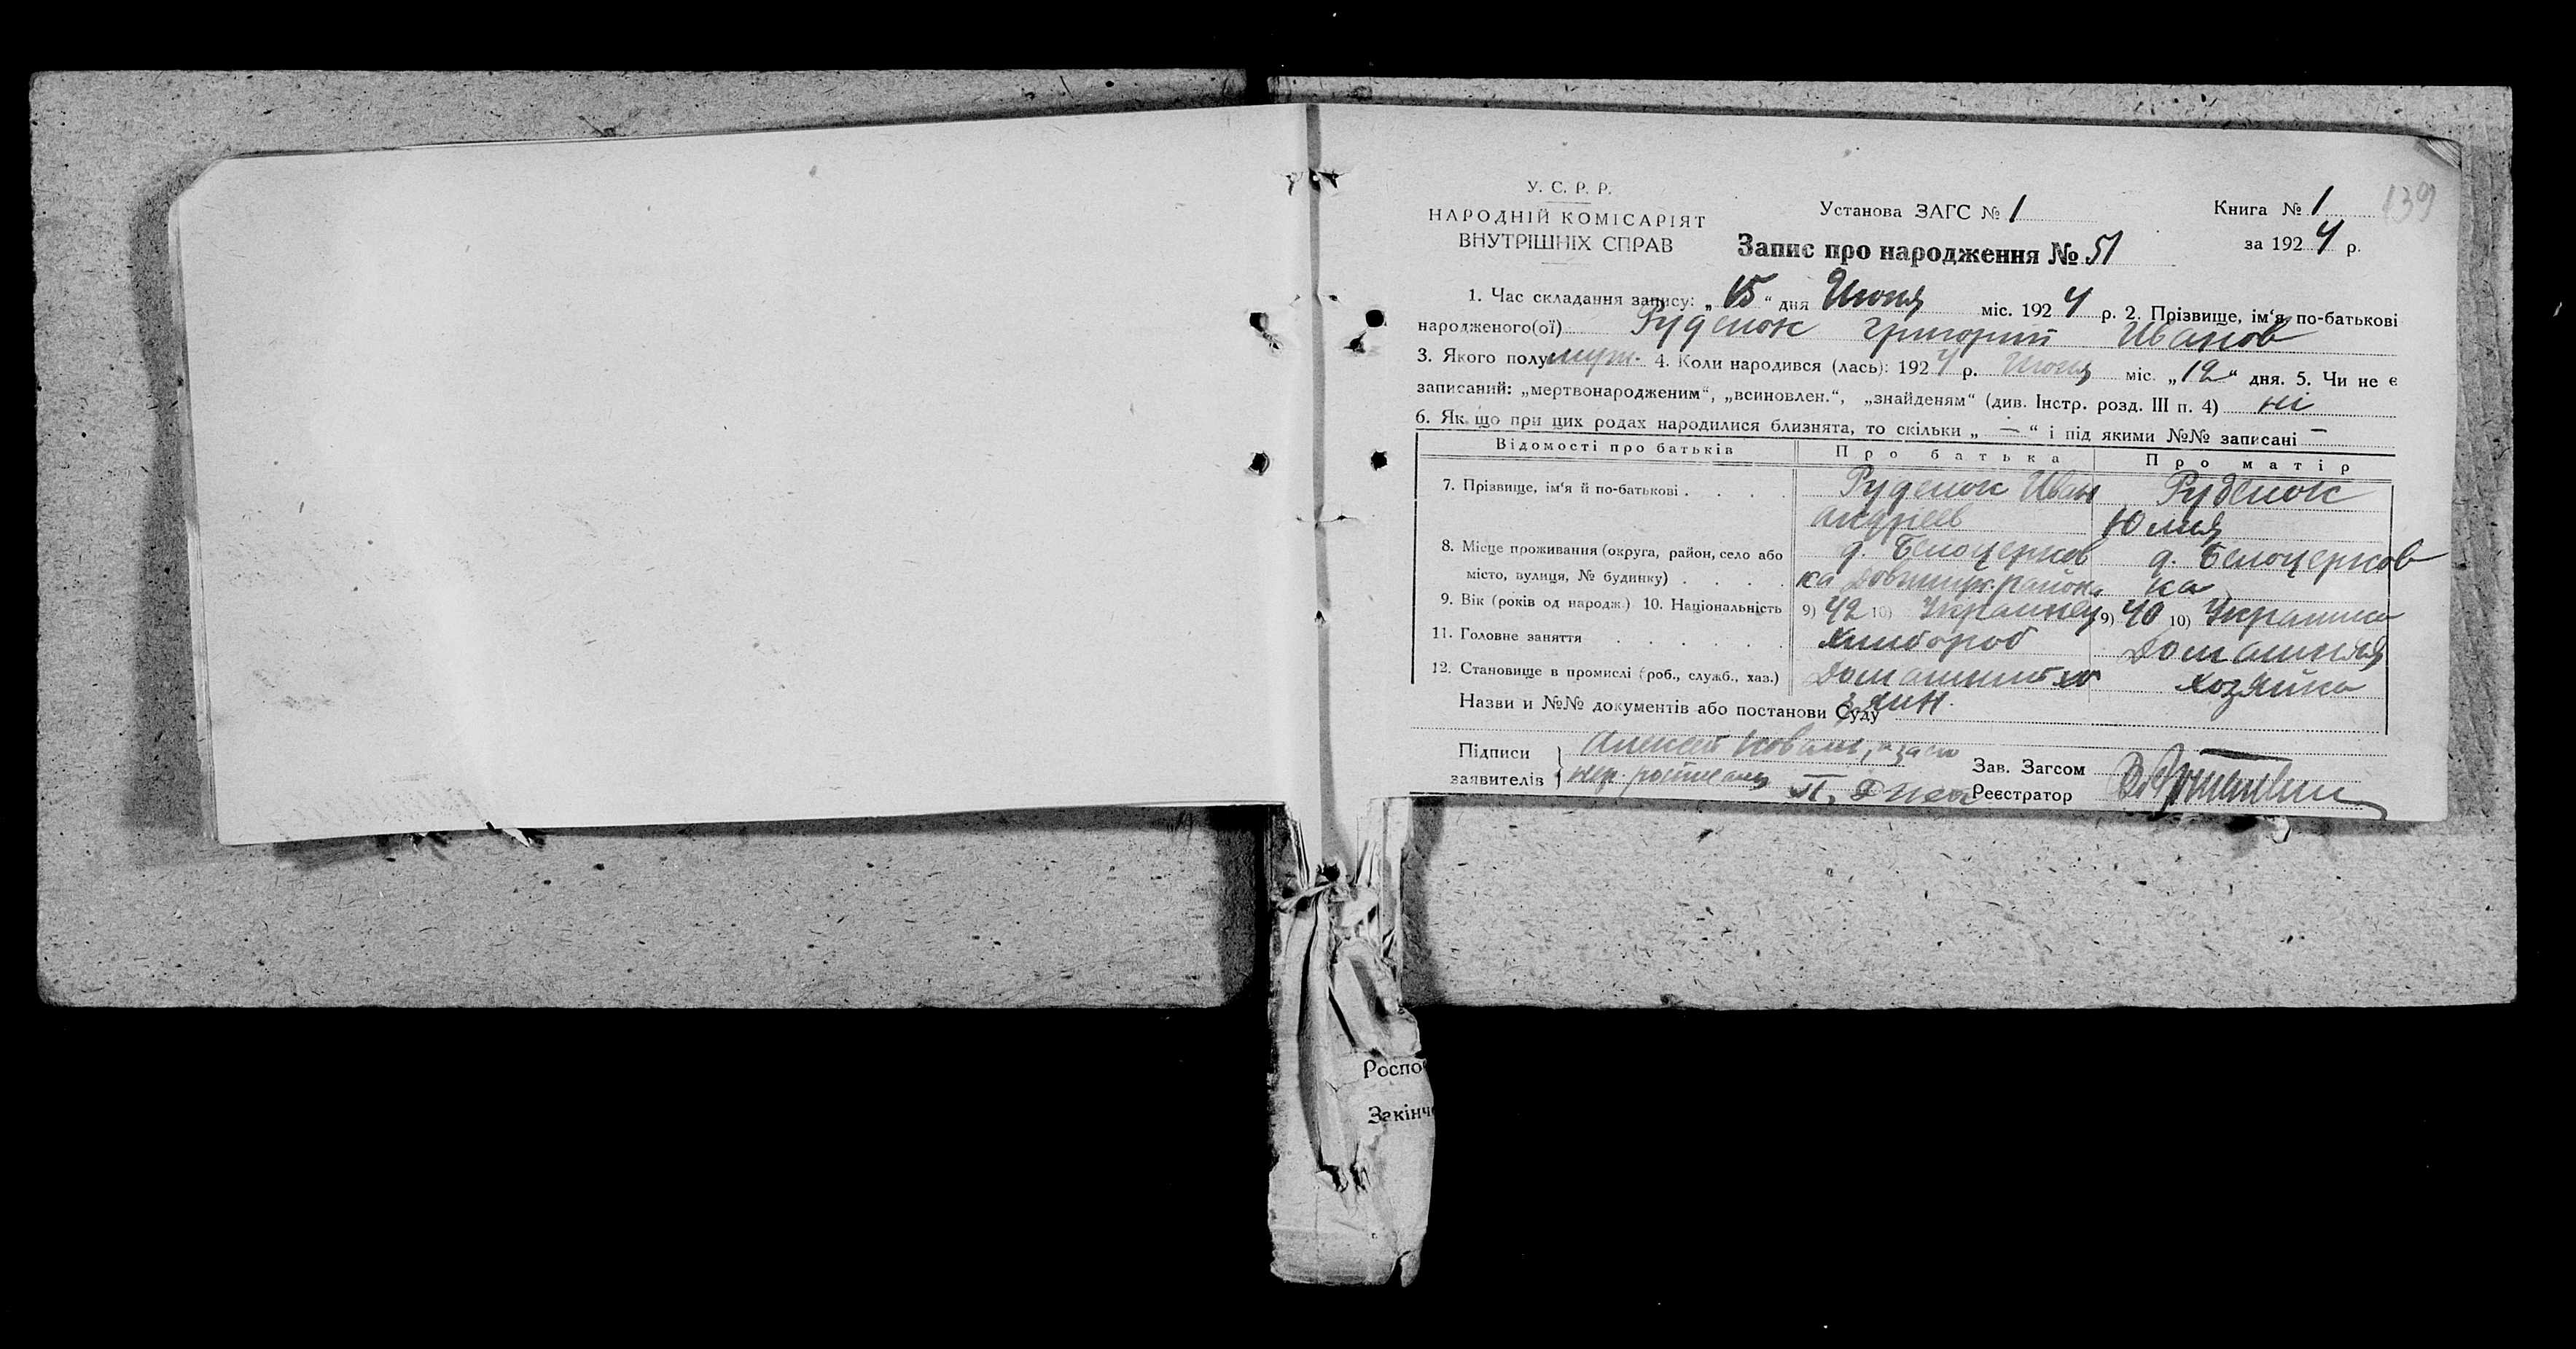 139
У. С. Р. Р.
НАРОДНІЙ КОМІСАРІЯТ
ВНУТРІШНІХ СПРАВ
Установа ЗАГС № 1
Книга № 1
за 1924 р.
Запис про народження № 51
1. Час складання запису: „15“ дня Июня міс. 1924 р. 2. Прізвище, ім‘я по-батькові
народженого(ої) Руденок Григорий Иванов
3. Якого полу муж. 4. Коли народився (лась): 1924 р. Июня міс. „12“ дня. 5. Чи не є
записаний: „мертвонародженим“, „всиновлен.“, „знайденям“ (див. Інстр. розд. III п. 4) ні
6. Як що при цих родах народилися близнята, то скільки „—“ і під якими №№ записані —
Відомості про батьків Про батька Про матір
7. Прізвище, ім‘я й по-батькові . . . . Руденок Иван Руденок
Андреев Юлия
8. Місце проживання (округа, район, село або д. Белоцерков д. Белоцерков
місто, вулиця, № будинку) . . . . ка района ка
9. Вік (років од народж.) 10. Національність 9) 42 10) Украинец 9) 40 10) Украинка
11. Головне заняття . . . . Хлибороб Домашняя
12. Становище в промислі (роб., служб., хаз.) Домашний хо хозяйка
Назви и №№ документів або постанови Суду зяин.
Підписи Алексей Коваль, а за его
заявителів нер. росписался
Зав. Загсом
Реєстратор
Роспо
Закінч